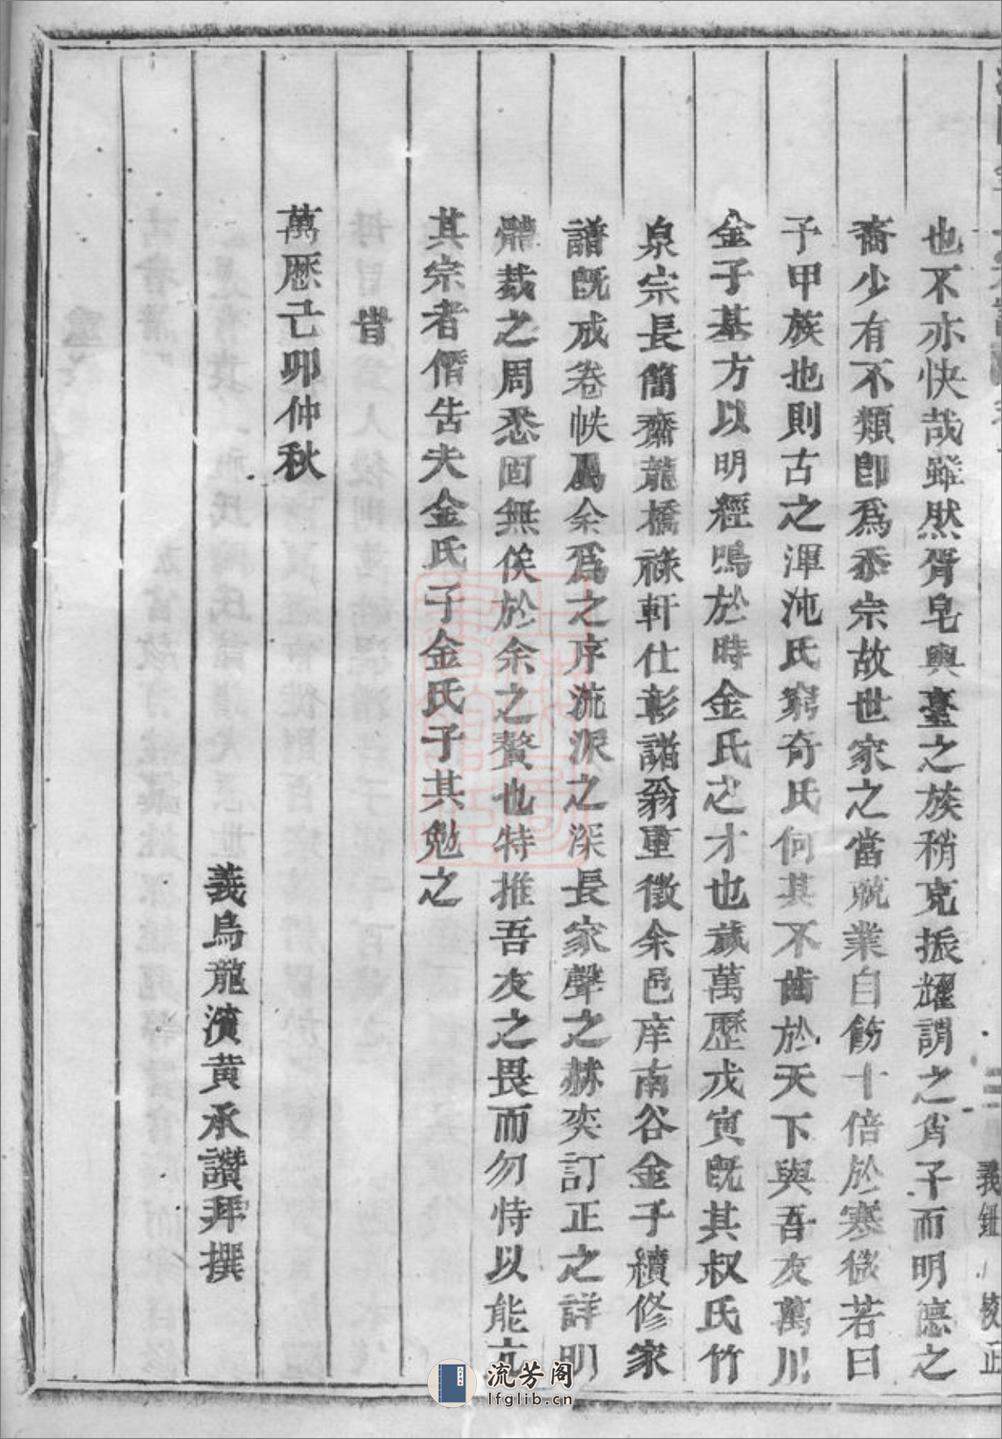 也不亦快哉雖然胥皂輿臺之族稍克振耀謂之肖子而明德之
裔少有不類即為忝宗故世家之當兢業自飭十倍於寒微若曰
予甲族也則古之渾沌氏窮奇氏何其不齒於天下與吾友萬川
金子基方以明經鳴於時金氏之才也歲萬歷戊寅既其叔氏竹
泉宗長簡齋龍橋祿軒仕彰諸翁重徵余邑庠南谷金子續修家
譜既成卷帙屬余為之序流派之深長家聲之赫奕訂正之詳明
體裁之周悉固無俟於余之贅也特推吾友之畏而勿恃以能亢
其宗者僭告夫金氏子金氏子其勉之
旹
萬歷己卯仲秋
義烏龍濱黄承讚拜撰
校正
流芳阁
lfglib.cn